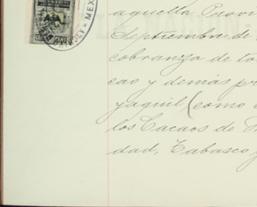 MEX
aquella Provi
Septiembre de
cobranza de lo
cao y demás pr
yaquil (como
los Cacaos de
dad, Tabasco y